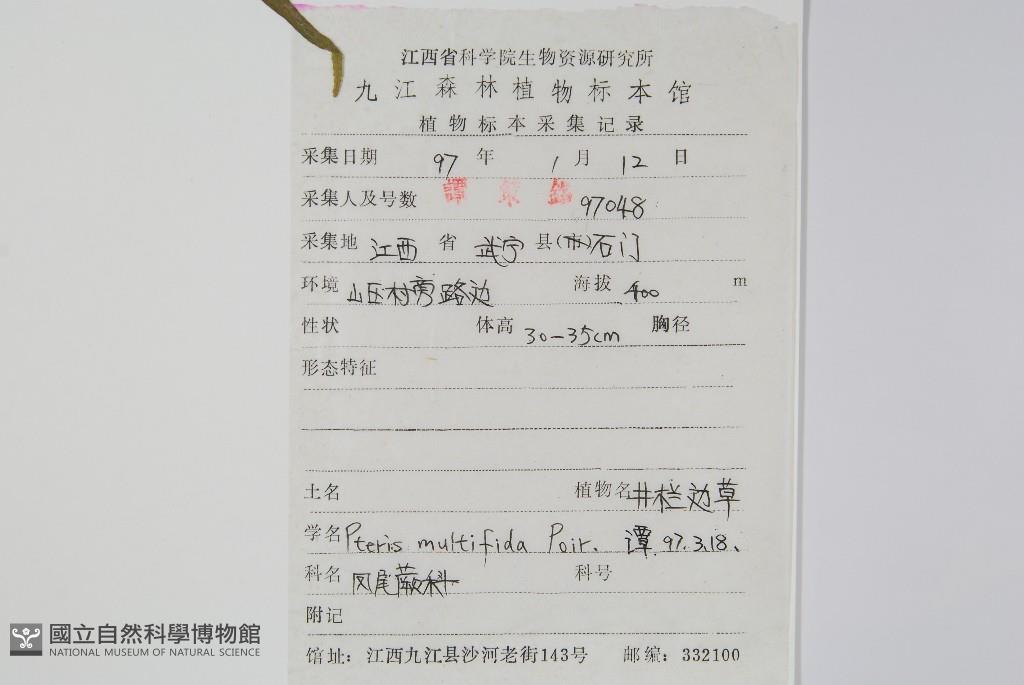 江西省科学院生物资源研究所
九江森林植物标本馆
植物标本采集记录
采集日期 97 年 1 月 12 日
采集人及号数 97048
采集地 江西 省 武宁 县(市)石门
环境 山区村旁路边 海拔 400 m
性状 体高 30-35cm 胸径
形态特征
土名 植物名 井栏边草
学名 Pteris multifida Poir. 谭 97.3.18、
科名 凤尾蕨科 科号
附记
馆址：江西九江县沙河老街143号 邮编：332100
國立自然科學博物館
NATIONAL MUSEUM OF NATURAL SCIENCE